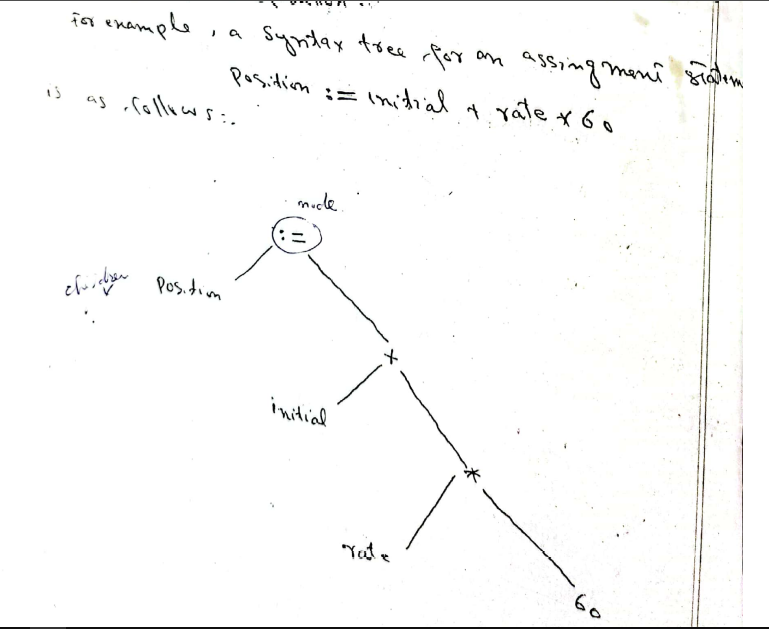 For example, a Syntax tree for an assingment statem
is as follows:.
Position := initial + rate * 60
node
:=
children Position
+
initial
*
rate
60